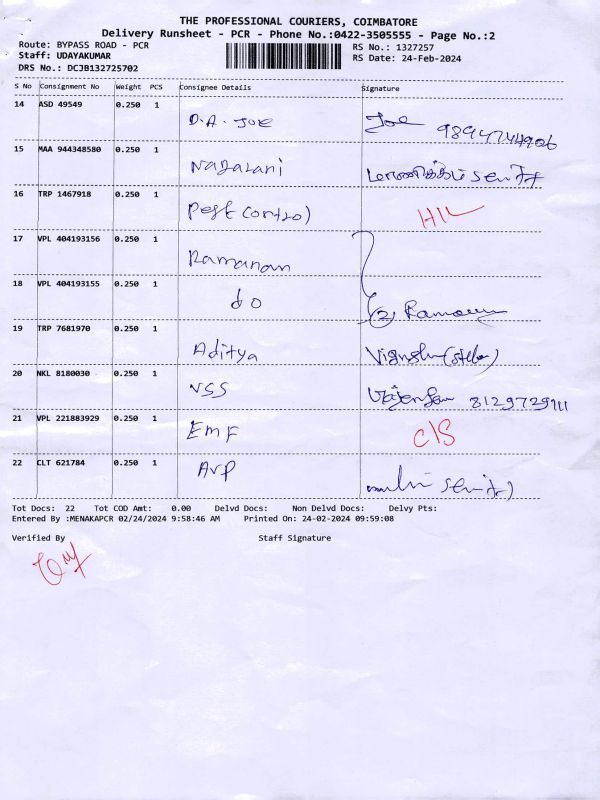 THE PROFESSIONAL COURIERS, COIMBATORE
Delivery Runsheet - PCR - Phone No.:0422-3505555 - Page No.:2
Route: BYPASS ROAD - PCR RS No.: 1327257
Staff: UDAYAKUMAR RS Date: 24-Feb-2024
DRS No.: DCJB132725702
S No Consignment No Weight PCS Consignee Details Signature
14 ASD 49549 0.250 1 D.A. JOE Joe 9894744906
15 MAA 944348580 0.250 1 Nagarani
16 TRP 1467918 0.250 1 Pest Control
17 VPL 404193156 0.250 1 Ramanan
18 VPL 404193155 0.250 1 do (2)
19 TRP 7681970 0.250 1 Aditya
20 NKL 8180030 0.250 1 VSS 8129729911
21 VPL 221883929 0.250 1 EMF C/S
22 CLT 621784 0.250 1 AVP
Tot Docs: 22 Tot COD Amt: 0.00 Delvd Docs: Non Delvd Docs: Delvy Pts:
Entered By :MENAKAPCR 02/24/2024 9:58:46 AM Printed On: 24-02-2024 09:59:08
Verified By Staff Signature